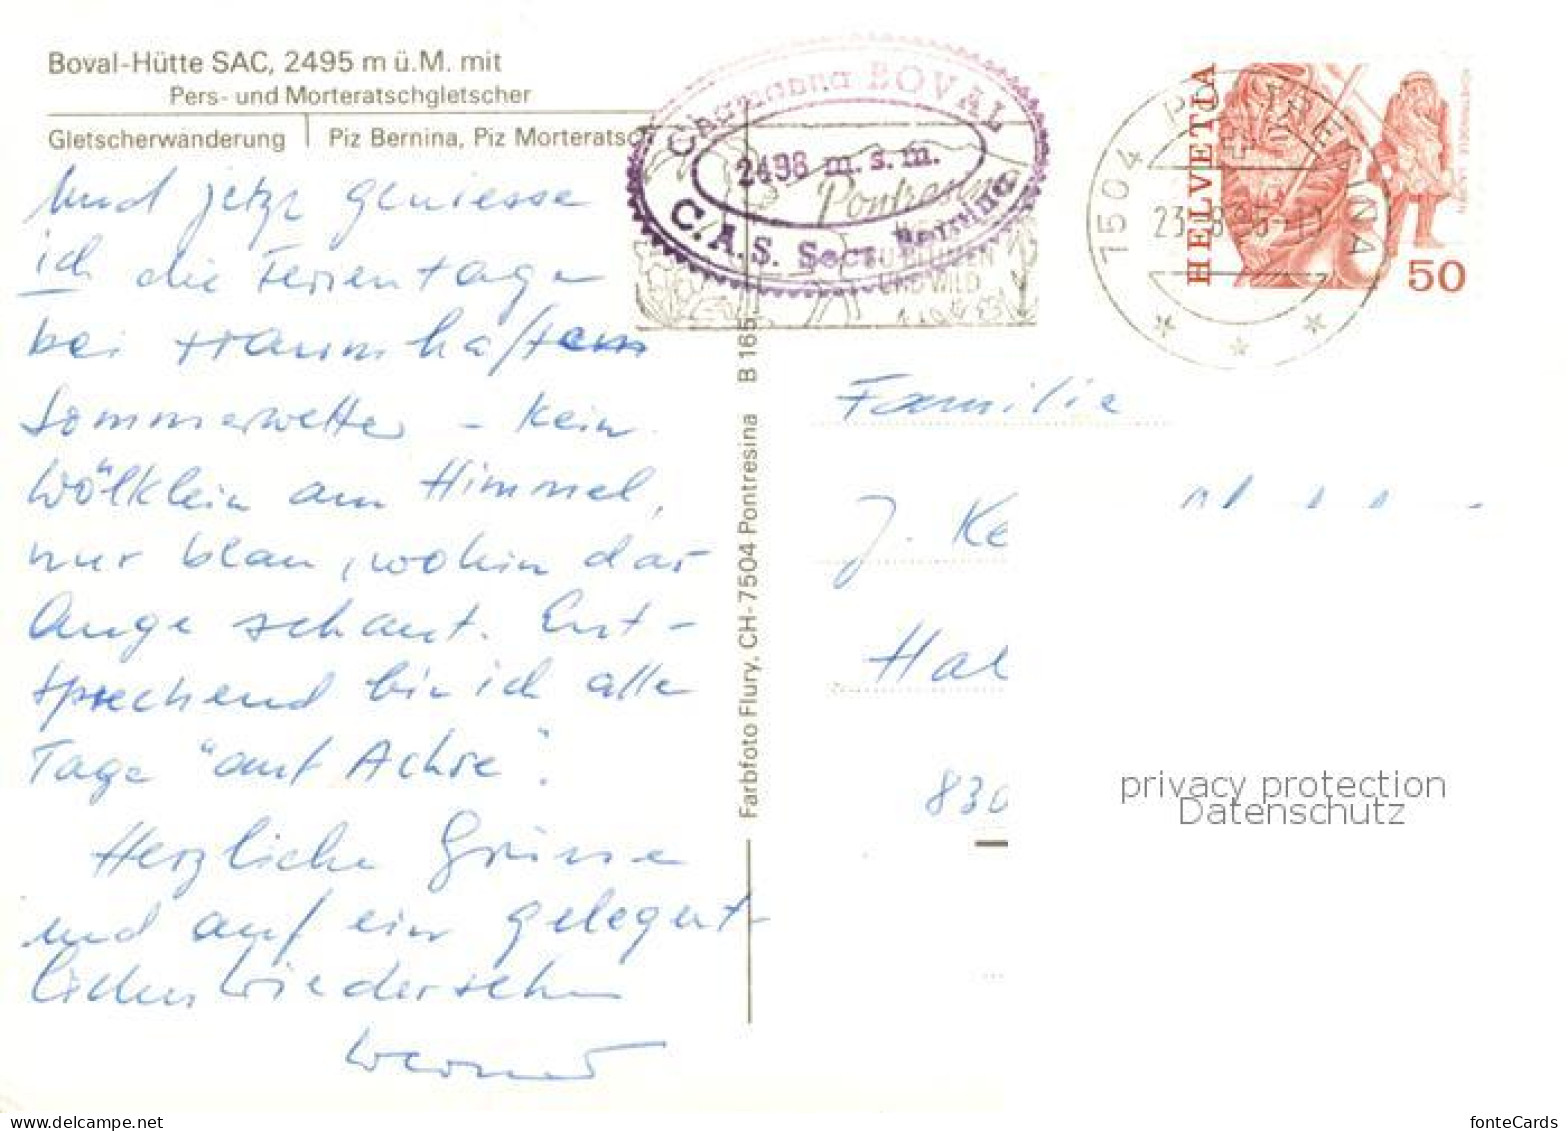 Boval-Hütte SAC, 2495 m ü.M. mit
Pers- und Morteratschgletscher
Gletscherwanderung | Piz Bernina, Piz Morteratsc
Chamanna BOVAL
2498 m. s. m.
C. A. S. Sect. Bernina
Pontresina
BLUMEN
UND WILD
1504 PONTRESINA
23. 8.
HELVETIA
50
Und jetzt geniesse
ich die Ferientage
bei traumhaftem
Sommerwetter – kein
Wölklein am Himmel,
nur blau, wohin das
Auge schaut. Ent-
sprechend bin ich alle
Tage "auf Achse".
Herzliche Grüsse
und auf ein gelegent-
liches Wiedersehen
Werner
Farbfoto Flury, CH-7504 Pontresina B 165
Familie
J. Ke
Hal
830
privacy protection
Datenschutz
fonteCards